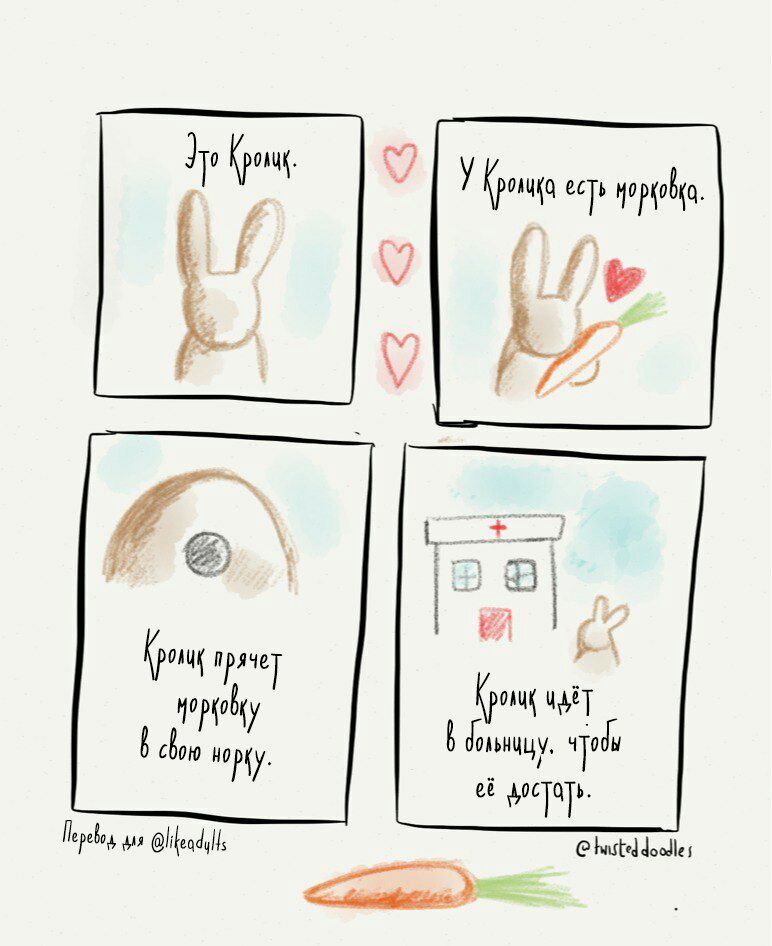 Это Кролик.
У Кролика есть морковка.
Кролик прячет
морковку
в свою норку.
Кролик идёт
в больницу, чтобы
её достать.
Перевод для @likeadylts
@twisteddoodles